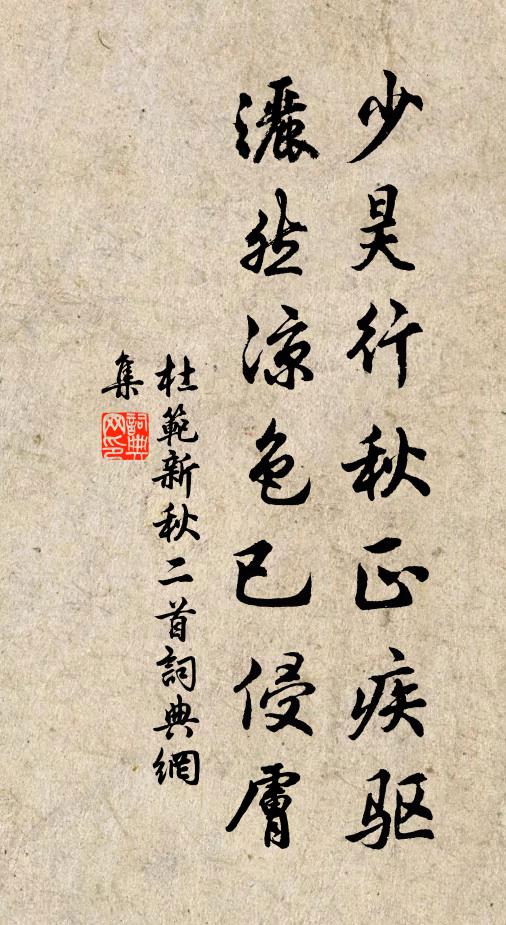 少昊行秋正疾驱
灑然凉色已侵膚
杜範新秋二首詞典網
集
詞典
网印